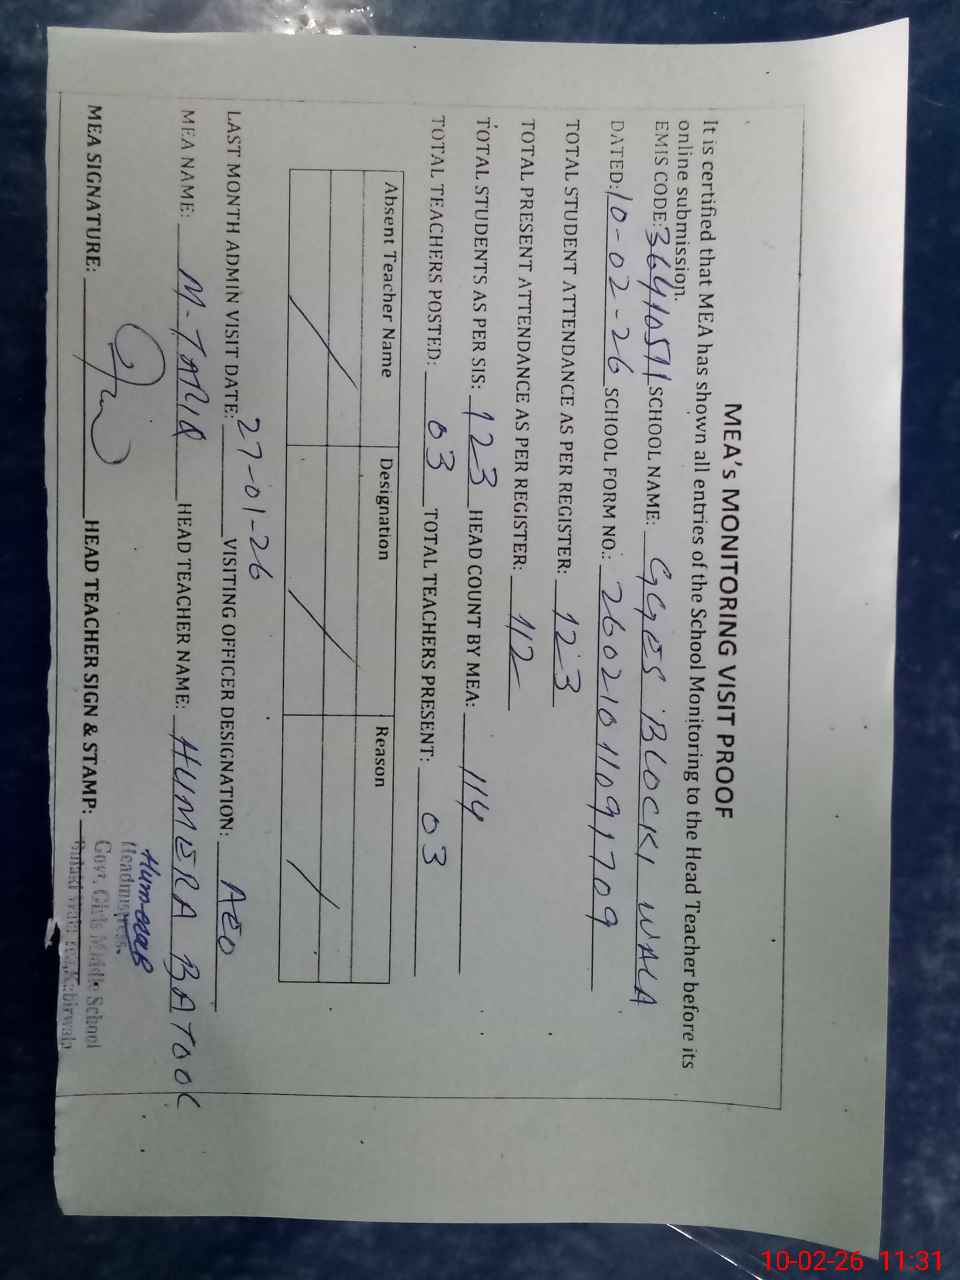 MEA's MONITORING VISIT PROOF
It is certified that MEA has shown all entries of the School Monitoring to the Head Teacher before its
online submission.
EMIS CODE: 36410511 SCHOOL NAME: GGES BLOCKI WALA
DATED: 10-02-26 SCHOOL FORM NO.: 26021011091709
TOTAL STUDENT ATTENDANCE AS PER REGISTER: 123
TOTAL PRESENT ATTENDANCE AS PER REGISTER: 112
TOTAL STUDENTS AS PER SIS: 123 HEAD COUNT BY MEA: 114
TOTAL TEACHERS POSTED: 03 TOTAL TEACHERS PRESENT: 03
Absent Teacher Name Designation Reason
LAST MONTH ADMIN VISIT DATE: 27-01-26 VISITING OFFICER DESIGNATION: AEO
MEA NAME: M-TARIQ HEAD TEACHER NAME: HUMERA BATOOL
MEA SIGNATURE: HEAD TEACHER SIGN & STAMP:
Headmistress.
Govt. Girls Middle School
Kabirwala
10-02-26 11:31